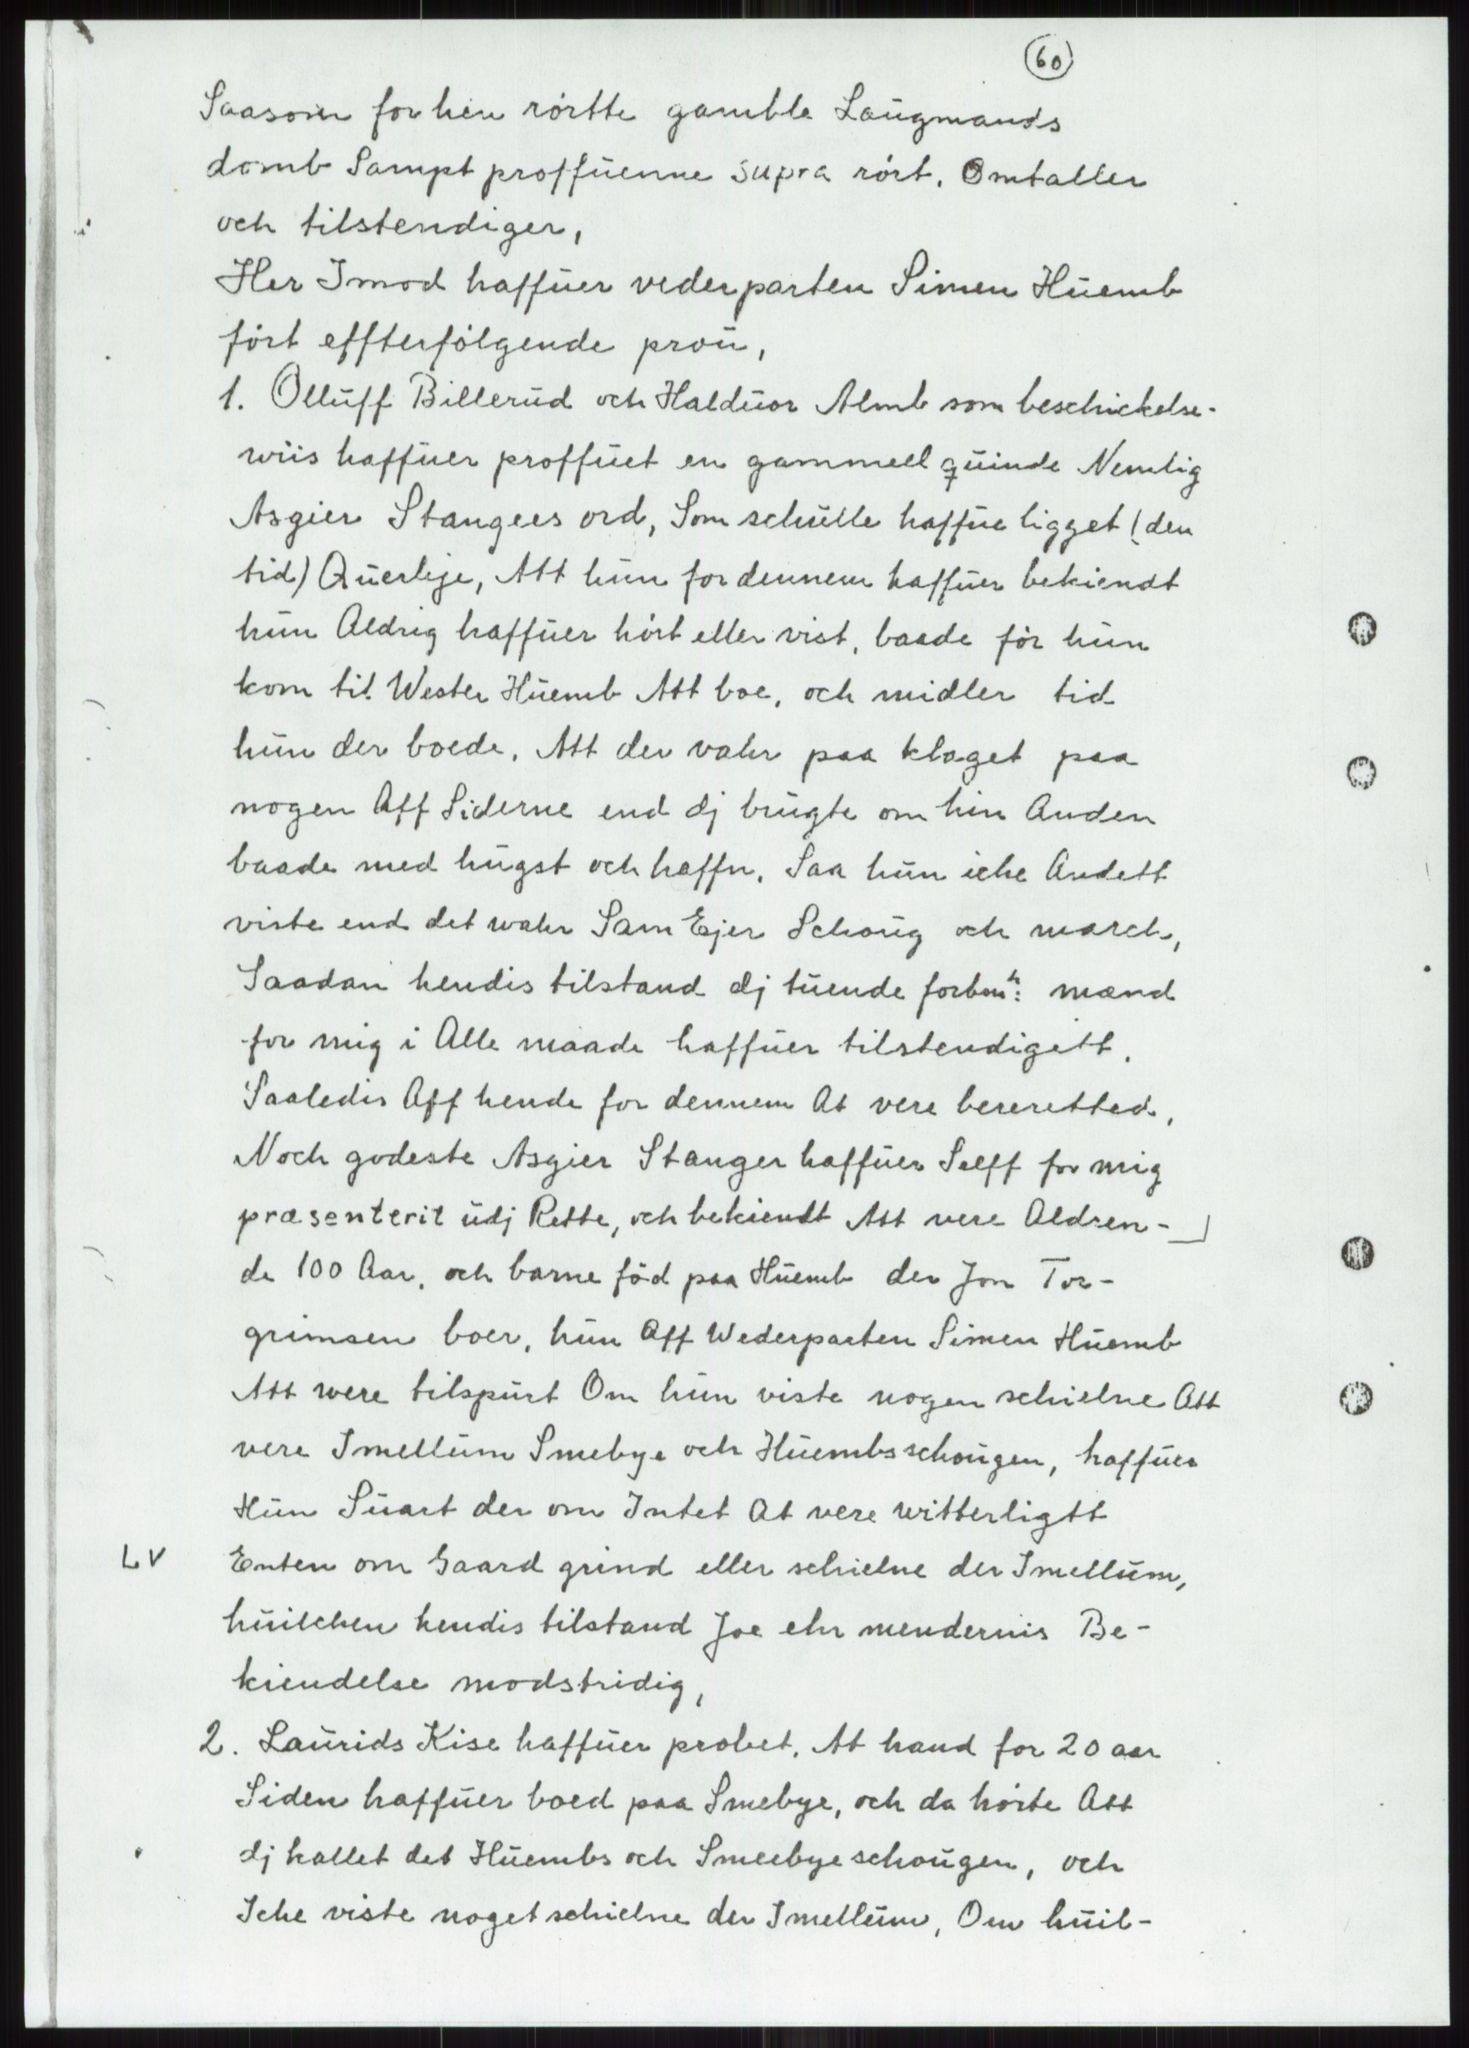 60
Saasom for hen rórtte gamble Laugmands
domb Sampt proffuenne supra rórt. Omtaller
och tilstendiger,
Her Imod haffuer vederparten Simen Huemb
fórt effterfólgende prou,
1. Olluff Billerud och Halduor Almb som beschickelse-
wiis haffuer proffuet en gammell quinde Nemlig
Asgier Stangees ord, Som schulle haffue ligget (den
tid) Querleje, Att hun for dennem haffuer bekiendt
hun Aldrig haffuer hórt eller vist, baade fór hun
kom til Wester Huemb Att boe, och midler tid
hun der boede. Att der vahr paa klaget paa
nogen Aff Siderne end dj brugte om hin Anden
baade med hugst och haffn. Saa hun iche Andett
viste end det wahr Sam Ejer Schoug och march,
Saadan hendis tilstand dj tuende forbemh: mænd
for mig i Alle maade haffuer tilstendigett.
Saaledis Aff hende for dennem At vere bereretted.
Noch godeste Asgier Stanger haffuer Selff for mig
præsenterit udj Rette, och bekiendt Att vere Aldren-
de 100 Aar, och barne fód paa Huemb der Jon Tor-
grimsen boer, hun Aff Wederparten Simen Huemb
Att were tilspurt Om hun viste nogen schielne Att
vere Imellum Smebye och Huembsschougen, haffuer
Hun Suart der om Intet At vere witterligtt
LV Enten om Gaard grind eller schielne der Imellum,
huilchen hendis tilstand Joe ehr mendernis Be-
kiendelse modstridig,
2. Laurids Kise haffuer probet. At hand for 20 aar
Siden haffuer boed paa Smebye, och da hórte Att
dj kallet det Huembs och Smeebye schougen, och
Iche viste noget schielne der Imellum, Om huil-